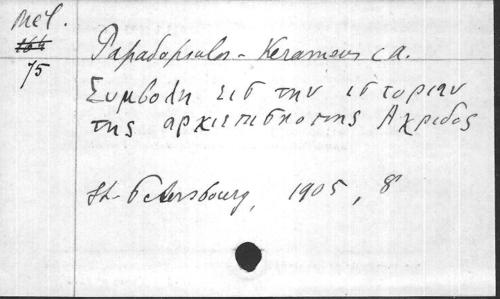 Mel.
164
75
Papadopoulos - Kerameus A.
Συμβολη εισ την ιστοριαν
της αρχιεπισκοπης Αχριδος
St-Petersbourg, 1905, 8°